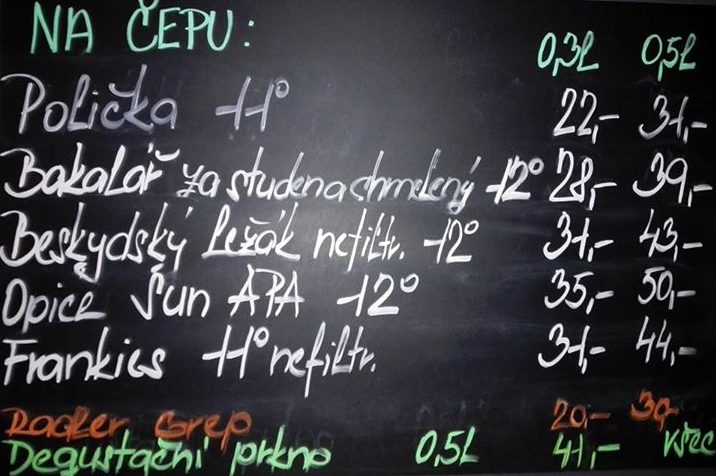 NA ČEPU: 0,3L 0,5L
Polička 11° 22,- 31,-
Bakalář za studena chmelený 12° 28,- 39,-
Beskydský Ležák nefiltr. 12° 31,- 43,-
Opice Sun APA 12° 35,- 50,-
Frankies 11° nefiltr. 31,- 44,-
Radler Grep 20,- 30,-
Degustační prkno 0,5L 41,- všec